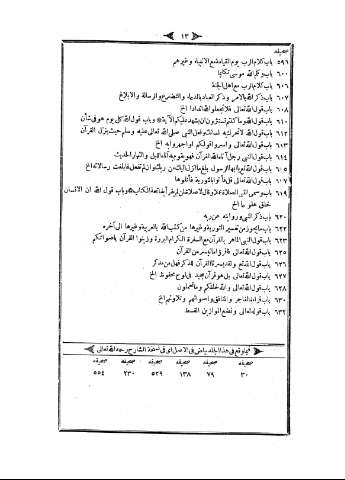 ١٣
صحيفه
٥٩٦ باب كلام الرب يوم القيامة مع الانبياء وغيرهم
٦٠٠ باب وكلم الله موسى تكليما
٦٠٦ باب كلام الرب مع اهل الجنة
٦٠٧ باب ذكر الله بالامر وذكر العباد بالدعاء والتضرع والرسالة والابلاغ
٦٠٨ باب قول الله تعالى فلا تجعلوا لله اندادا الخ
٦١٠ باب قول الله وما كنتم تستترون ان يشهد عليكم الآية وباب قول الله كل يوم هو في شأن
٦١٢ باب قول الله لا تحرك به لسانك وفعل النبي صلى الله تعالى عليه وسلم حيث ينزل القرآن
٦١٣ باب قول الله تعالى واسروا قولكم او اجهروا به الخ
٦١٤ باب قول النبي رجل آتاه الله القرآن فهو يقوم به آناء الليل والنهار الحديث
٦١٥ باب قول الله تعالى يا ايها الرسول بلغ ما انزل اليك من ربك وان لم تفعل فما بلغت رسالاته الخ
باب قول الله تعالى قل فأتوا بالتوراة فاتلوها
٦١٩ باب وسمى النبي الصلاة عملا وقال لا صلاة لمن لم يقرأ بفاتحة الكتاب وباب قول الله ان الانسان
خلق هلوعا الخ
٦٢٠ باب ذكر النبي وروايته عن ربه
٦٢٢ باب ما يجوز من تفسير التوراة وغيرها من كتب الله بالعربية وغيرها الى آخره
٦٢٣ باب قول النبي الماهر بالقرآن مع السفرة الكرام البررة وزينوا القرآن باصواتكم
٦٢٥ باب قول الله تعالى فاقرؤا ما تيسر من القرآن
باب قول الله تعالى ولقد يسرنا القرآن للذكر فهل من مدكر
٦٢٧ باب قول الله تعالى بل هو قرآن مجيد في لوح محفوظ الخ
٦٢٨ باب قول الله تعالى والله خلقكم وما تعملون
٦٣٠ باب قراءة الفاجر والمنافق واصواتهم وتلاوتهم الخ
٦٣٢ باب قوله تعالى ونضع الموازين القسط
في هذا الجلد بياض في الاصل اى في نسخة الشارح رحمه الله تعالى
صحيفه صحيفه صحيفه صحيفه صحيفه صحيفه
٣٠ ٧٩ ١٣٨ ٥٢٩ ٢٣٠ ٥٥٤